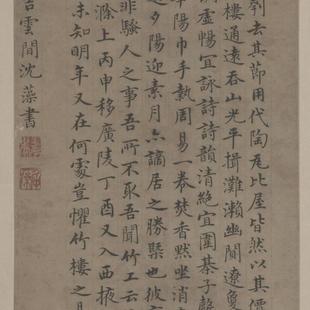 刳去其節用代陶瓦比屋皆然以其價
樓通遠吞山光平挹灘瀨幽闃遼敻
調虛暢宜詠詩詩韻清絕宜圍棊子聲
華陽巾手執周易一卷焚香默坐消
送夕陽迎素月亦謫居之勝槩也彼
非騷人之事吾所不取吾聞竹工云
滁上丙申移廣陵丁酉又入西掖
未知明年又在何處豈懼竹樓之
雲間沈藻書